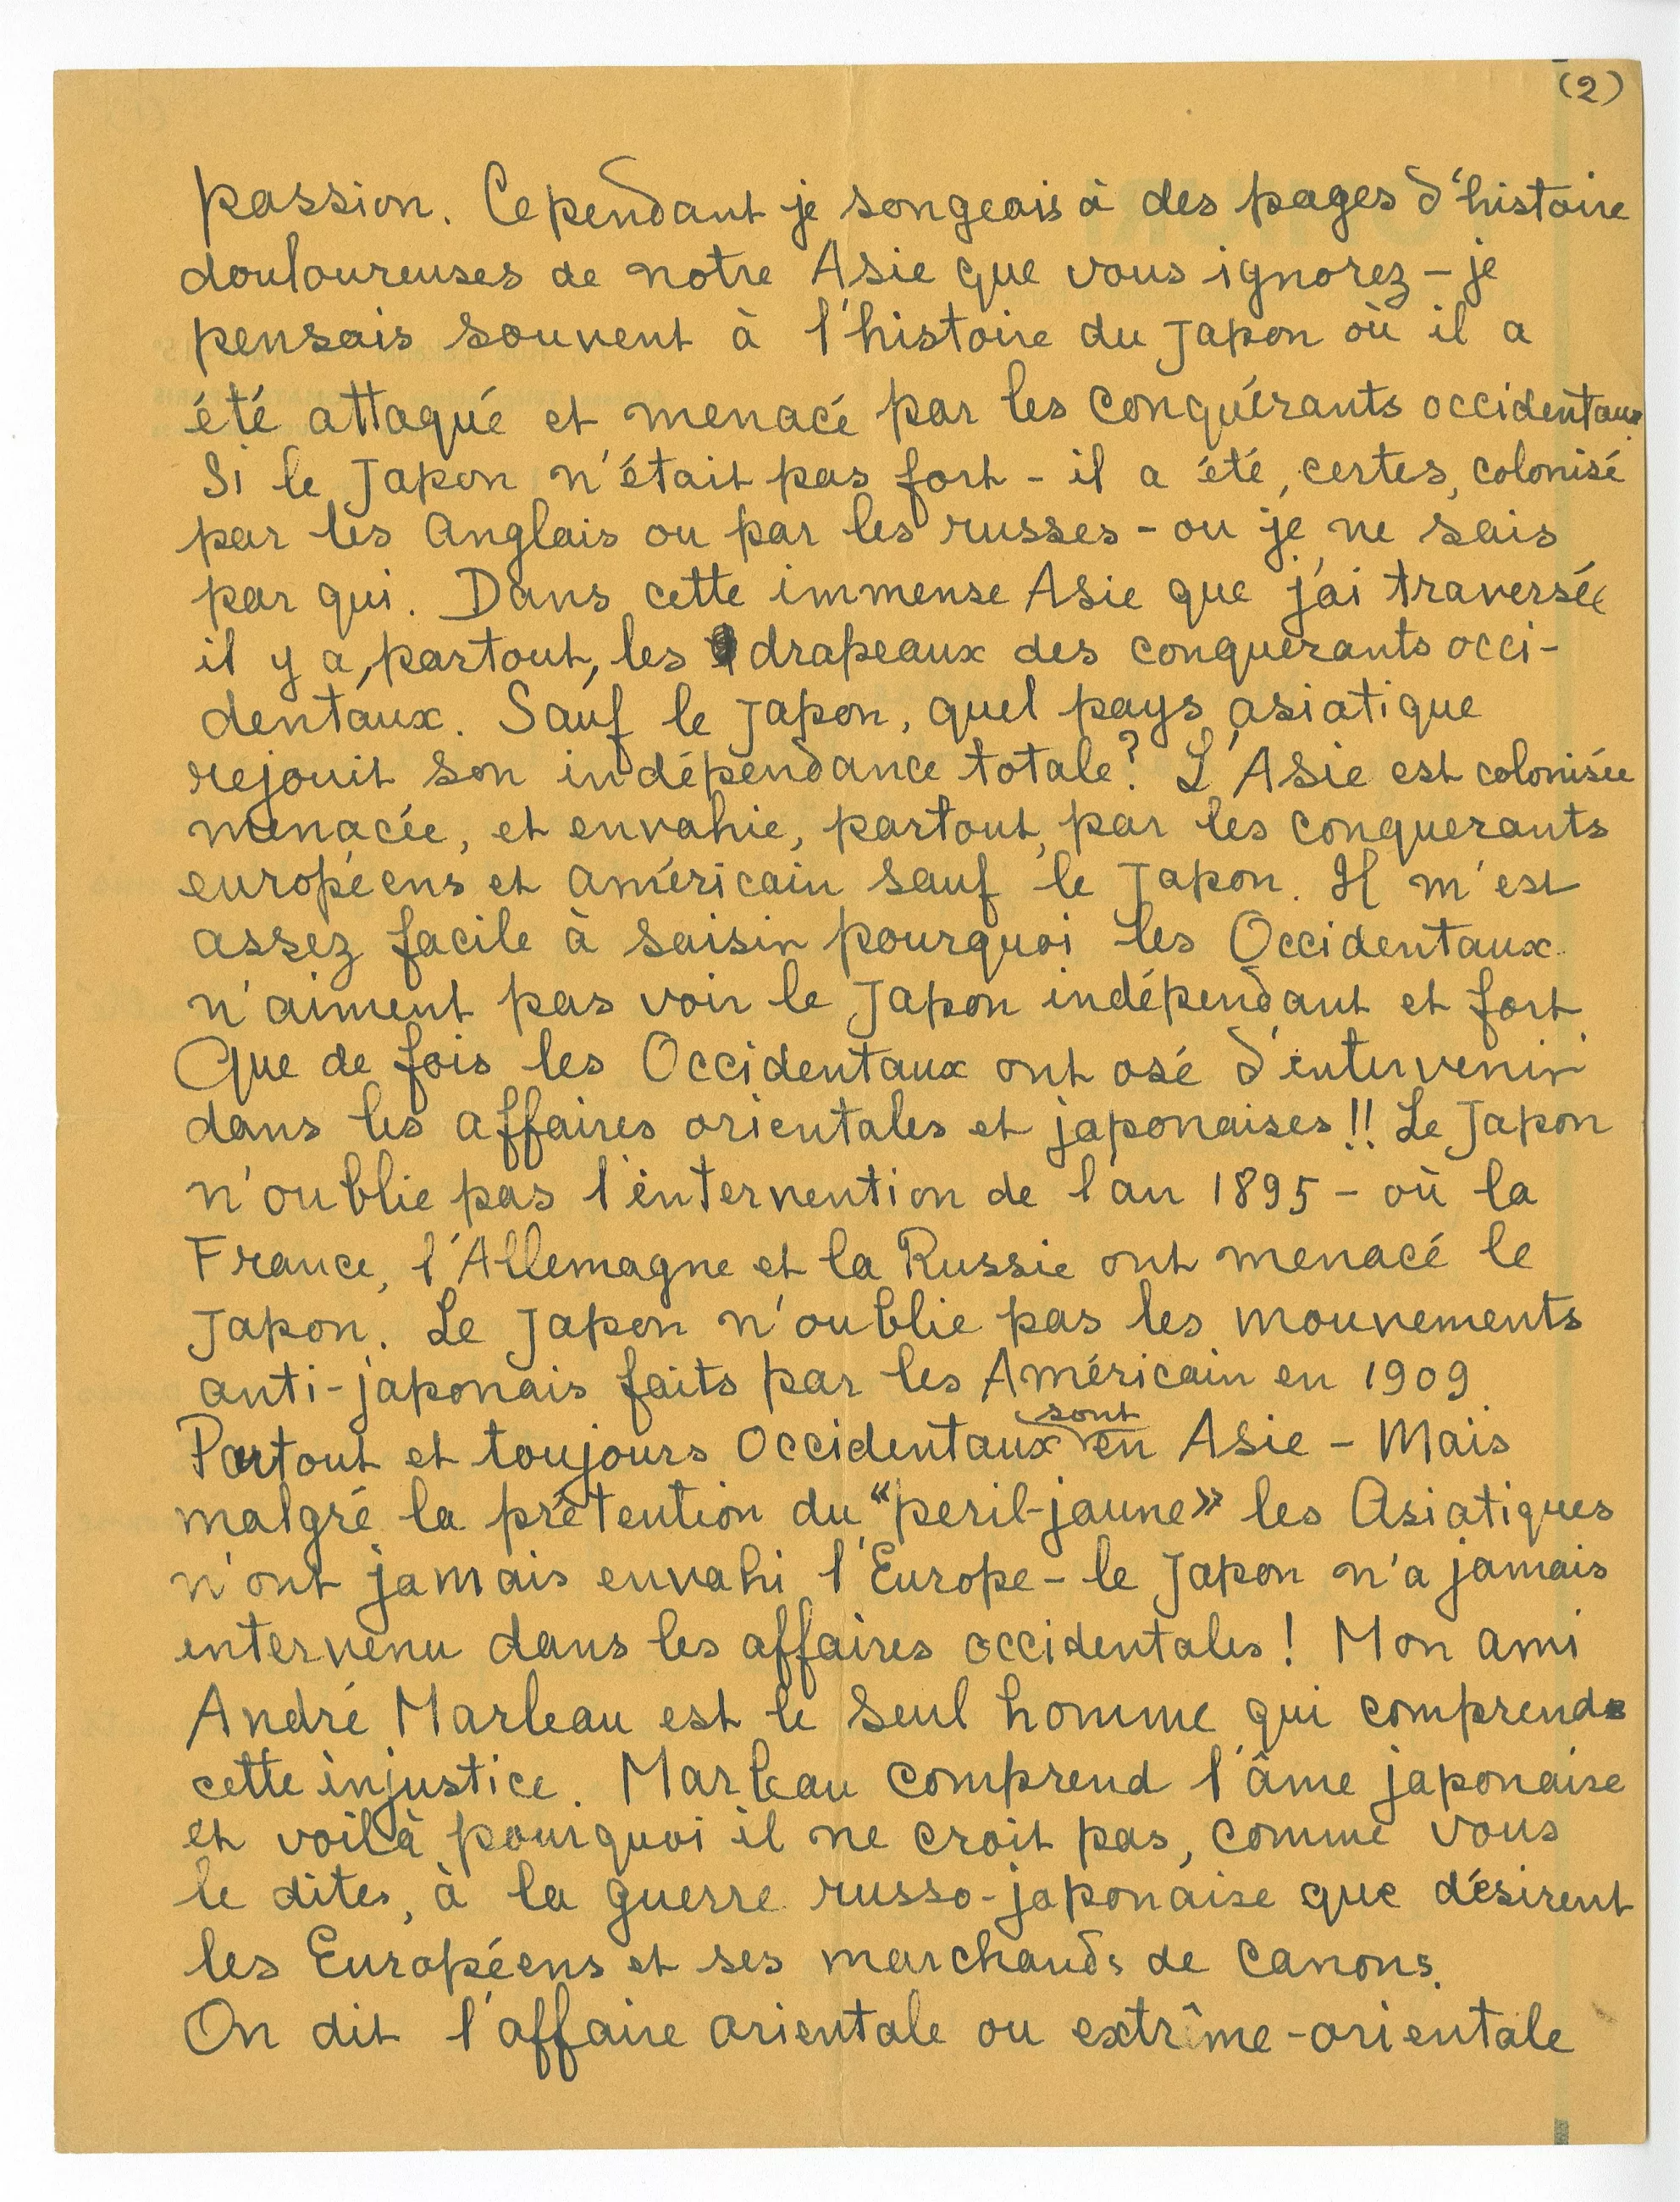 (2)
passion. Cependant je songeais à des pages d'histoire
douloureuses de notre Asie que vous ignorez - je
pensais souvent à l'histoire du Japon où il a
été attaqué et menacé par les conquérants occidentaux.
Si le Japon n'était pas fort - il a été, certes, colonisé
par les Anglais ou par les russes - ou je ne sais
par qui. Dans cette immense Asie que j'ai traversée
il y a, partout, les drapeaux des conquerants occi-
dentaux. Sauf le Japon, quel pays asiatique
rejouit son indépendance totale? L'Asie est colonisée
menacée, et envahie, partout, par les conquerants
européens et américain sauf le Japon. Il m'est
assez facile à saisir pourquoi les Occidentaux
n'aiment pas voir le Japon indépendant et fort.
Que de fois les Occidentaux ont osé d'intervenir
dans les affaires orientales et japonaises!! Le Japon
n'oublie pas l'intervention de l'an 1895 - où la
France, l'Allemagne et la Russie ont menacé le
Japon. Le Japon n'oublie pas les mouvements
anti-japonais faits par les Américain en 1909.
Partout et toujours Occidentaux sont en Asie - Mais
malgré la prétention du "peril-jaune» les Asiatiques
n'ont jamais envahi l'Europe - le Japon n'a jamais
intervenu dans les affaires occidentales! Mon ami
André Marleau est le seul homme qui comprend
cette injustice. Marleau comprend l'âme japonaise
et voilà pourquoi il ne croit pas, comme vous
le dites, à la guerre russo-japonaise que désirent
les Européens et ses marchands de canons.
On dit l'affaire orientale ou extrême-orientale